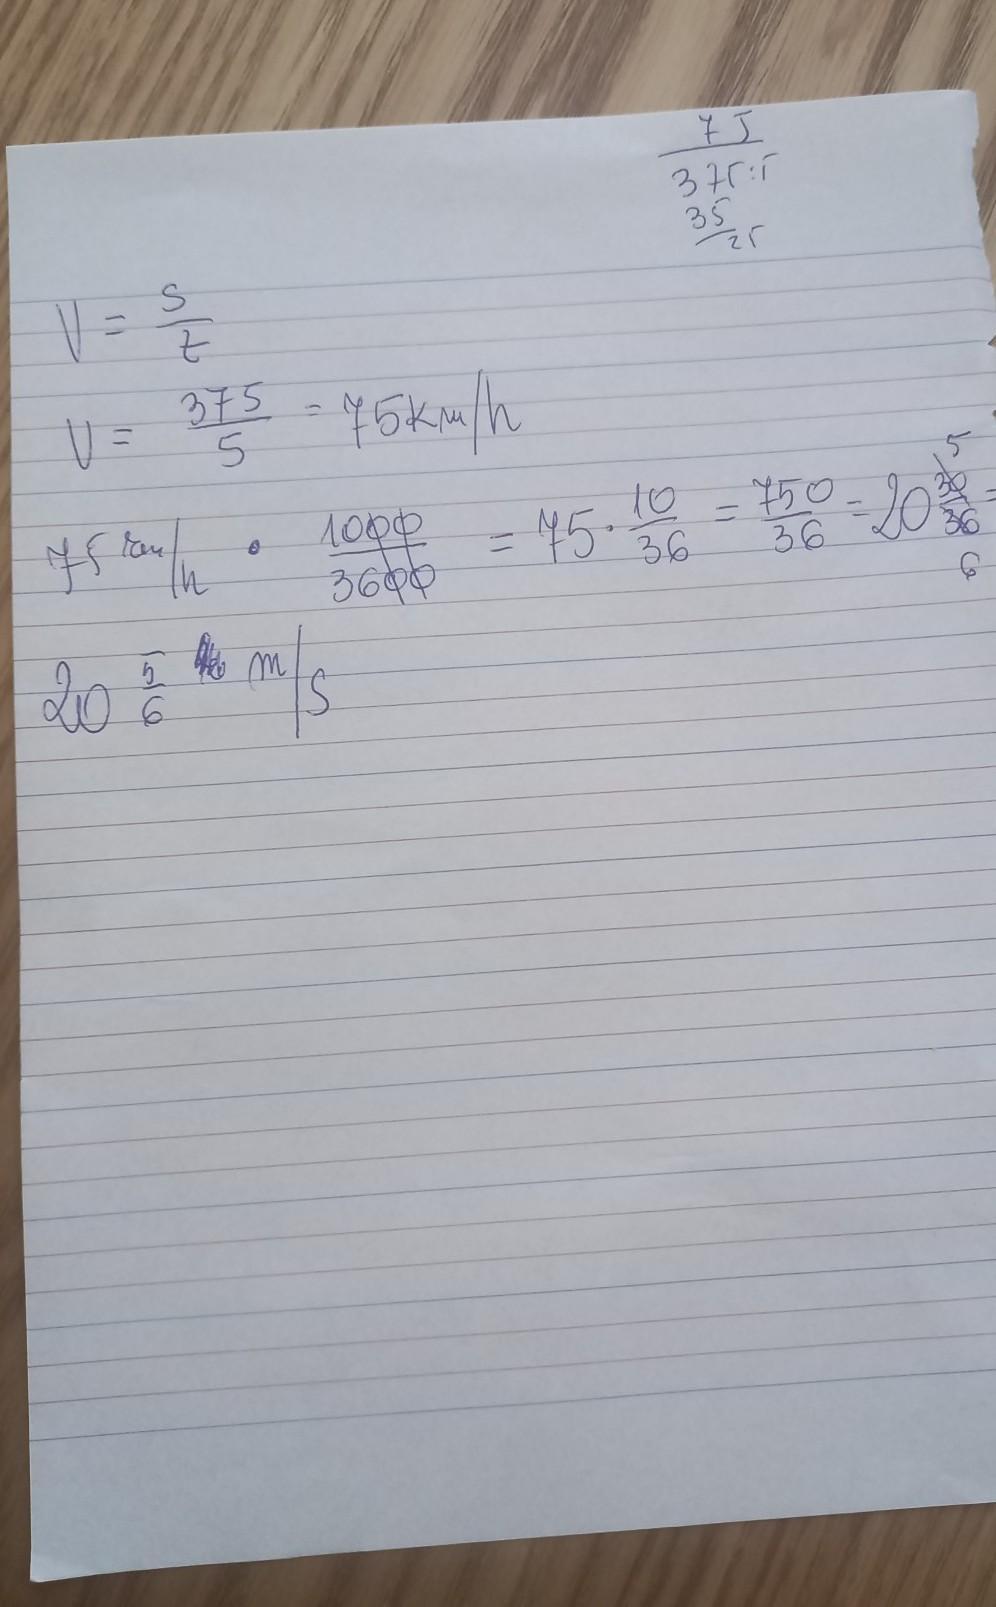 75
375:5
35
25
V = s/t
V = 375/5 = 75km/h
75 km/h · 1000/3600 = 75 · 10/36 = 750/36 = 20 30/36 =
5
6
20 5/6 m/s